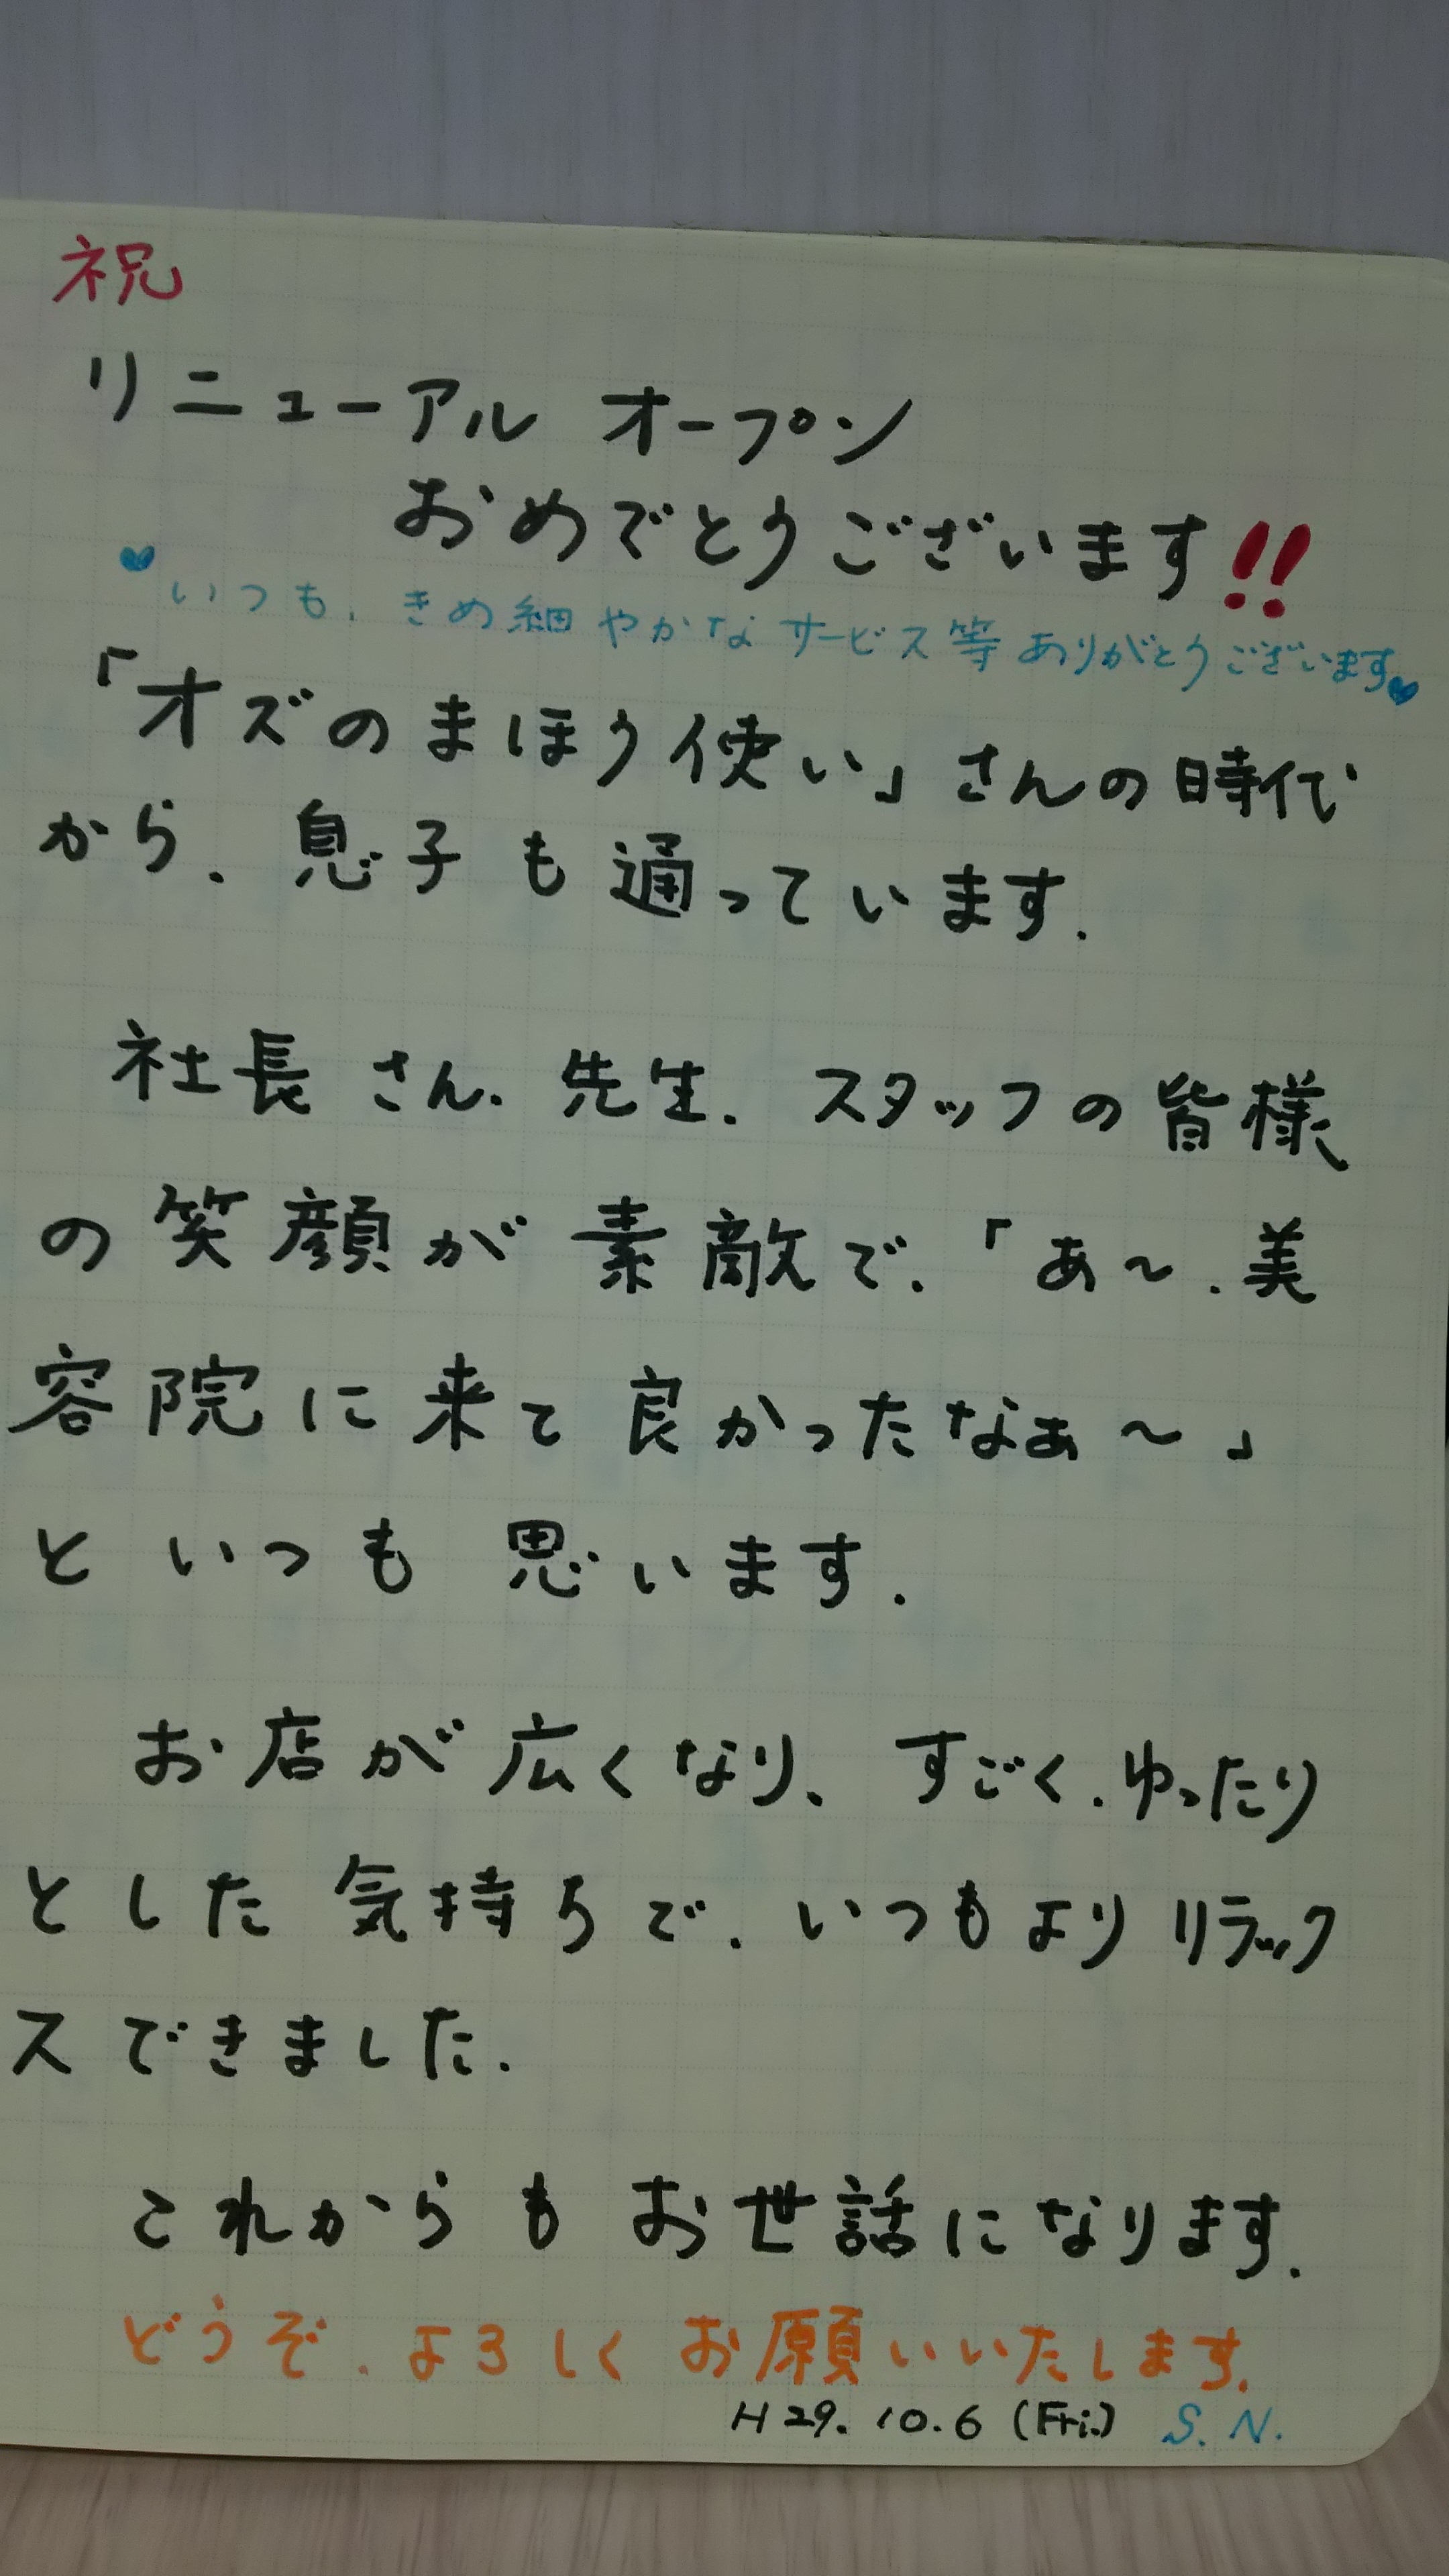 祝
リニューアル オープン
おめでとうございます!!
♥いつも、きめ細やかなサービス等ありがとうございます♥
「オズのまほう使い」さんの時代
から、息子も通っています.
社長さん、先生、スタッフの皆様
の笑顔が素敵で、「あ～、美
容院に来て良かったなぁ～」
といつも思います.
お店が広くなり、すごく、ゆったり
とした気持ちで、いつもよりリラック
スできました.
これからもお世話になります.
どうぞ、よろしくお願いいたします.
H29.10.6(Fri.) S.N.